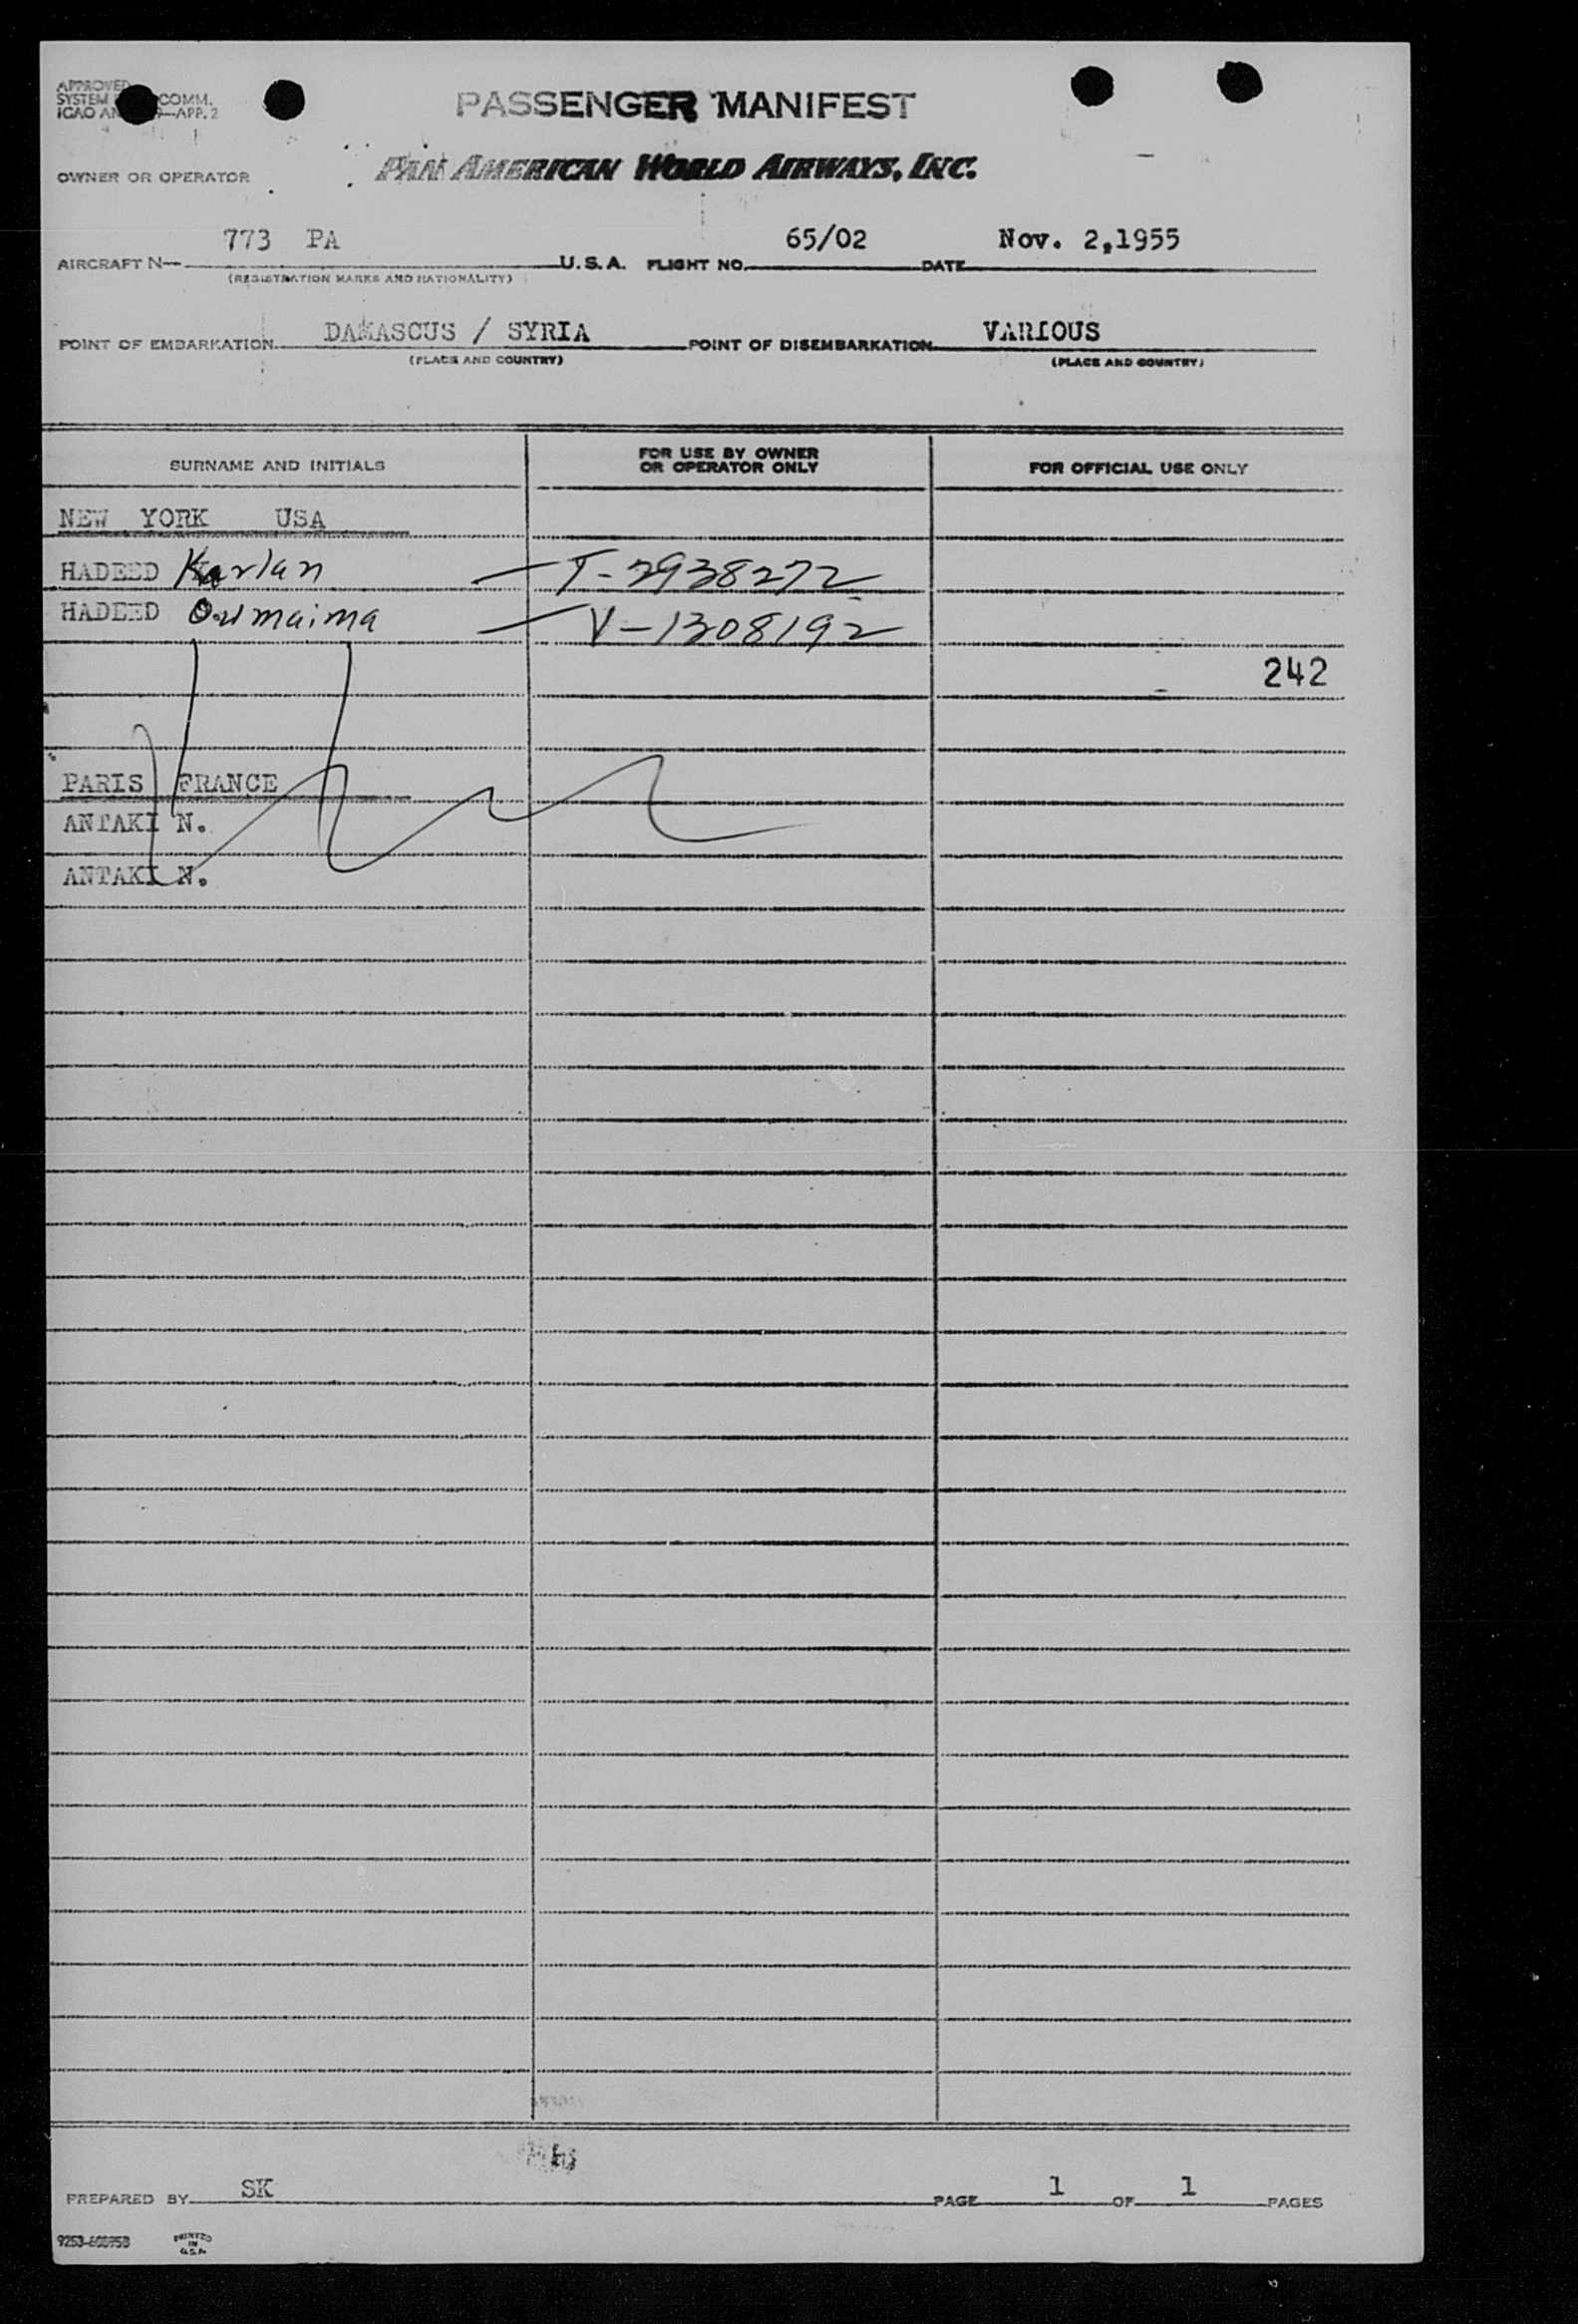 APPROVED
SYSTEM COMM.
ICAO AN —APP. 2
PASSENGER MANIFEST
OWNER OR OPERATOR PAN AMERICAN WORLD AIRWAYS, INC.
773 PA 65/02 Nov. 2,1955
AIRCRAFT N— U.S.A. FLIGHT NO. DATE
(REGISTRATION MARKS AND NATIONALITY)
POINT OF EMBARKATION DAMASCUS / SYRIA POINT OF DISEMBARKATION VARIOUS
(PLACE AND COUNTRY) (PLACE AND COUNTRY)
SURNAME AND INITIALS FOR USE BY OWNER OR OPERATOR ONLY FOR OFFICIAL USE ONLY
NEW YORK USA
HADEED Karlan — T-2938272
HADEED Oumaima — V-1308192
242
PARIS FRANCE
ANTAKI N.
ANTAKI N.
PREPARED BY SK PAGE 1 OF 1 PAGES
PRINTED IN U.S.A.